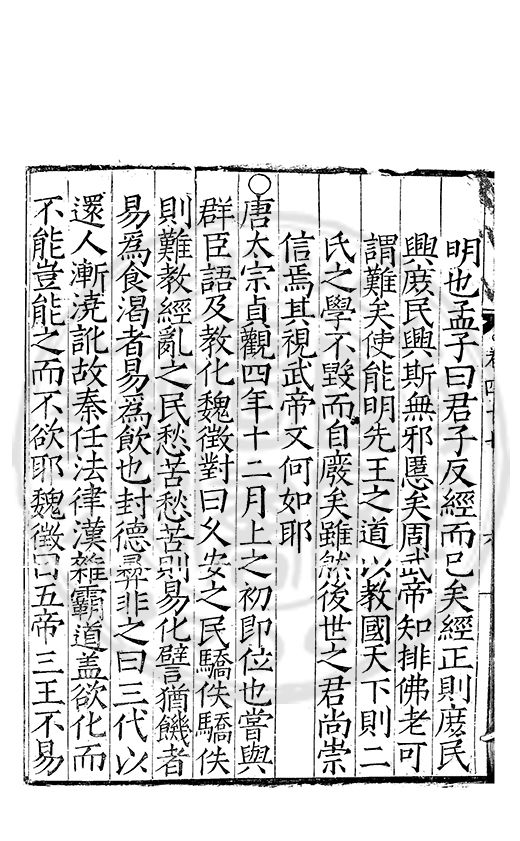 明也孟子曰君子反經而已矣經正則庶民
興庶民興斯無邪慝矣周武帝知排佛老可
謂難矣使能明先王之道以教國天下則二
氏之學不毀而自廢矣雖然後世之君尚崇
信焉其視武帝又何如耶
○唐太宗貞觀四年十二月上之初即位也嘗與
群臣語及教化魏徵對曰久安之民驕佚驕佚
則難教經亂之民愁苦愁苦則易化譬猶饑者
易為食渴者易為飲也封德彝非之曰三代以
還人漸澆訛故秦任法律漢雜霸道盖欲化而
不能豈能之而不欲耶魏徵曰五帝三王不易